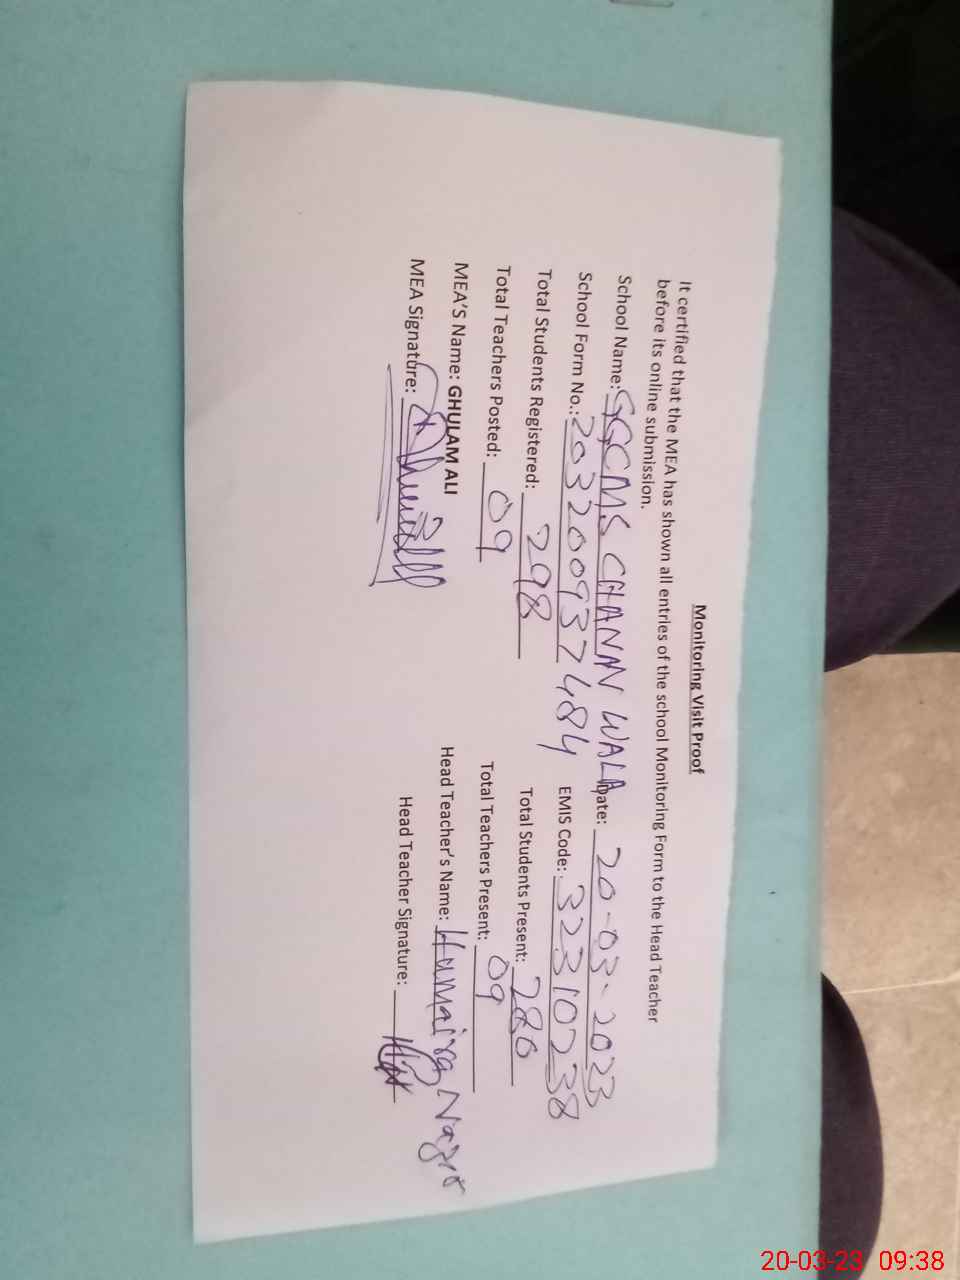 Monitoring Visit Proof
It certified that the MEA has shown all entries of the school Monitoring Form to the Head Teacher
before its online submission.
School Name: GGCMS CHANAN WALA Date: 20-03-2023
School Form No.: 203200937484 EMIS Code: 32310238
Total Students Registered: 298 Total Students Present: 286
Total Teachers Posted: 09 Total Teachers Present: 09
MEA'S Name: GHULAM ALI Head Teacher's Name: Humaira
MEA Signature: Head Teacher Signature:
20-03-23 09:38